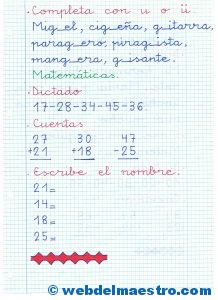 . Completa con u o ü
Mig_el, cig_eña, g_itarra,
parag_ero, pirag_ista,
mang_era, g_isante.
Matemáticas.
. Dictado
17-28-34-45-36
. Cuentas
27 30 47
+21 +18 -25
. Escribe el nombre.
21=
14=
18=
25=
© webdelmaestro.com